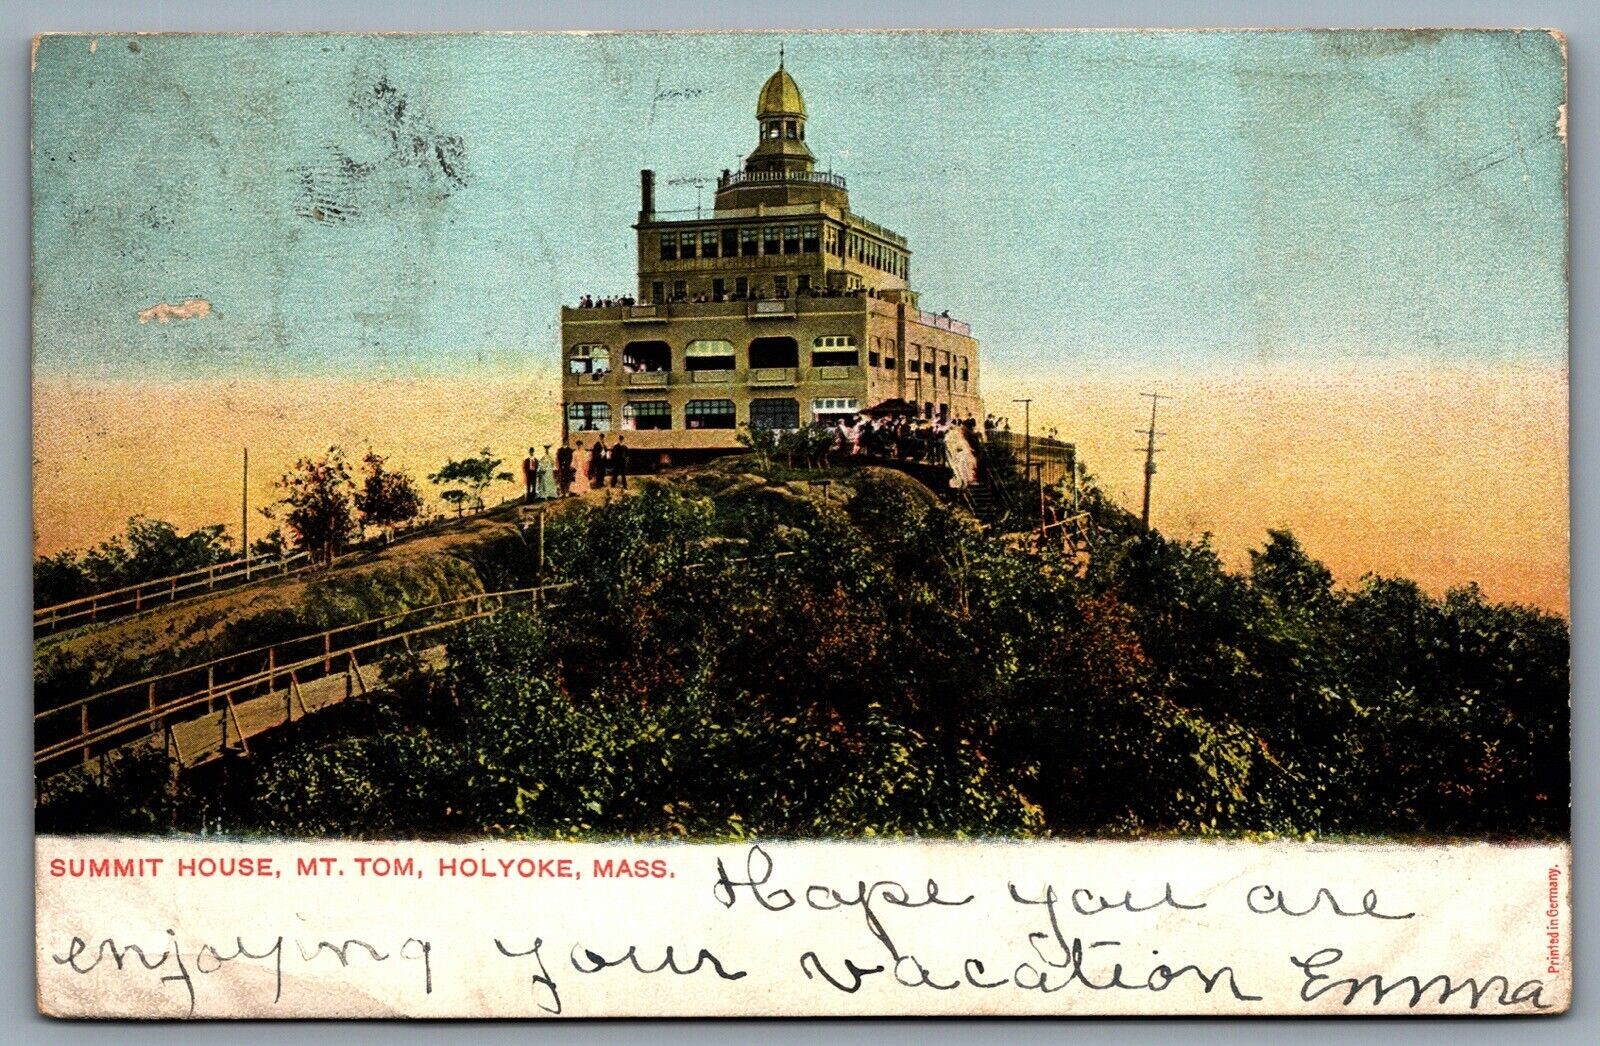 SUMMIT HOUSE, MT. TOM, HOLYOKE, MASS.
Hope you are
enjoying your vacation Emma
Printed in Germany.